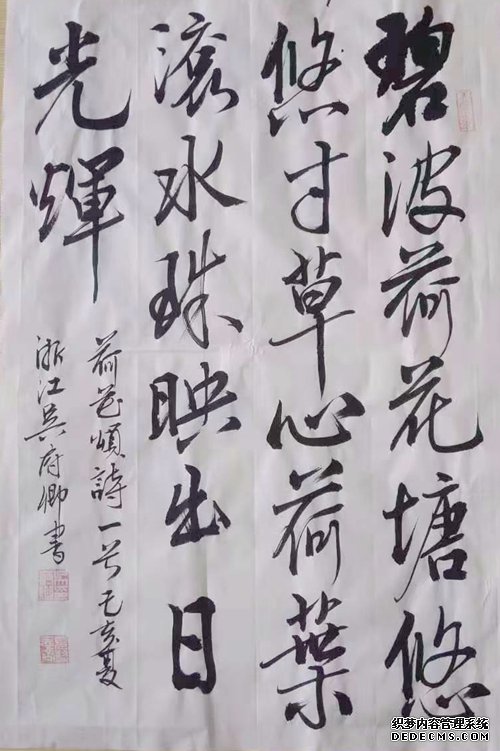 碧波荷花塘悠
悠寸草心荷葉
滚水珠映出日
光輝
荷花頌詩一首己亥夏
浙江吴府卿書
织梦内容管理系统
DEDECMS.COM